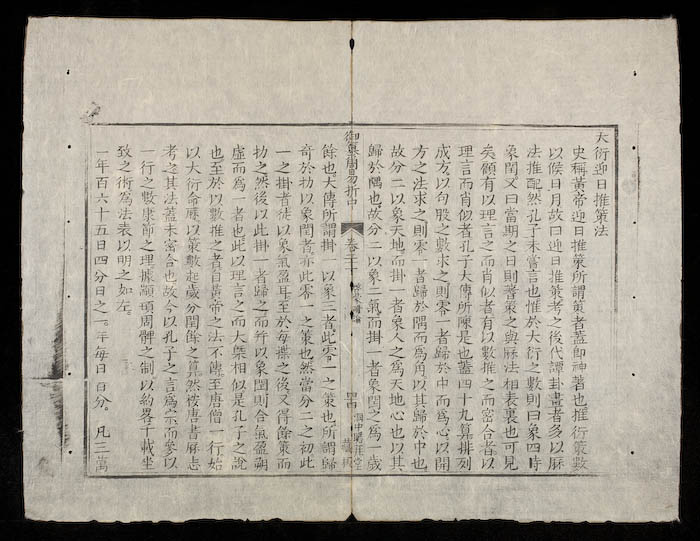 大衍迎日推策法
史稱黃帝迎日推策所謂策者蓋即神蓍也推衍策數
以候日月故曰迎日推策考之後代譚卦畫者多以厤
法推配然孔子未嘗言也惟於大衍之數則曰象四時
象閏又曰當期之日則蓍策之與厤法相表裏也可見
矣顧有以理言之而肖似者有以數推之而密合者以
理言而肖似者孔子大傳所陳是也蓋四十九算排列
成方以句股之數求之則零一者歸於中而為心以開
方之法求之則零一者歸於隅而為角以其歸於中也
故分二以象天地而掛一者象人之為天地心也以其
歸於隅也故分二以象二氣而掛一者象閏之為一歲
御纂周易折中 卷二十
餘也大傳所謂掛一以象三者此零一之策也所謂歸
奇於扐以象閏者亦此零一之策也然當分二之初此
一之掛者徒以象氣盈耳至於每揲之後又得餘策而
扐之然後以此掛一者歸之而并以象閏則合氣盈朔
虛而為一者也此以理言之而大槩相似是孔子之說
也至於以數推之者自黃帝之法不傳至唐僧一行始
以大衍命厤以策數起歲分閏餘之算然按唐書厤志
考之其法蓋未密合也故今以孔子之言為宗而參以
一行之數康節之理據顓頊周髀之制以約畧千載坐
致之術為法表以明之如左。
一年百六十五日四分日之一。年每日百分。凡三萬